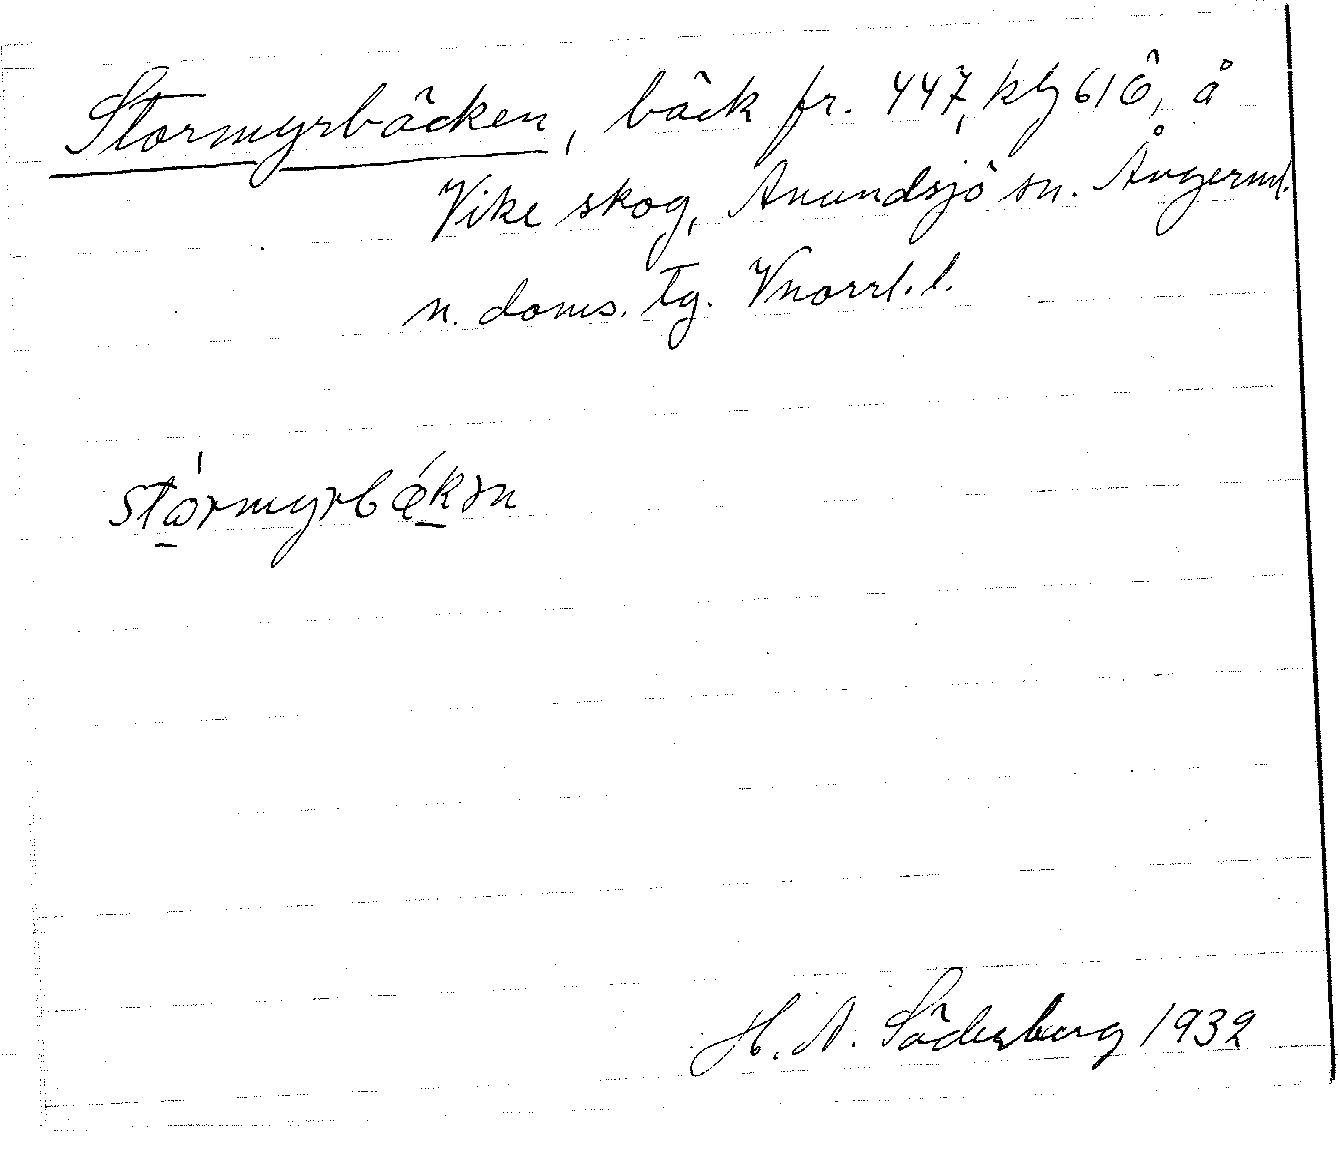 Stormyrbäcken, bäck fr. 447, klj 616, å
Vike skog, Anundsjö sn. Ångerml.
n. doms. tg. Vnorrl. l.
stormyrbækən
H. A. Söderberg 1932